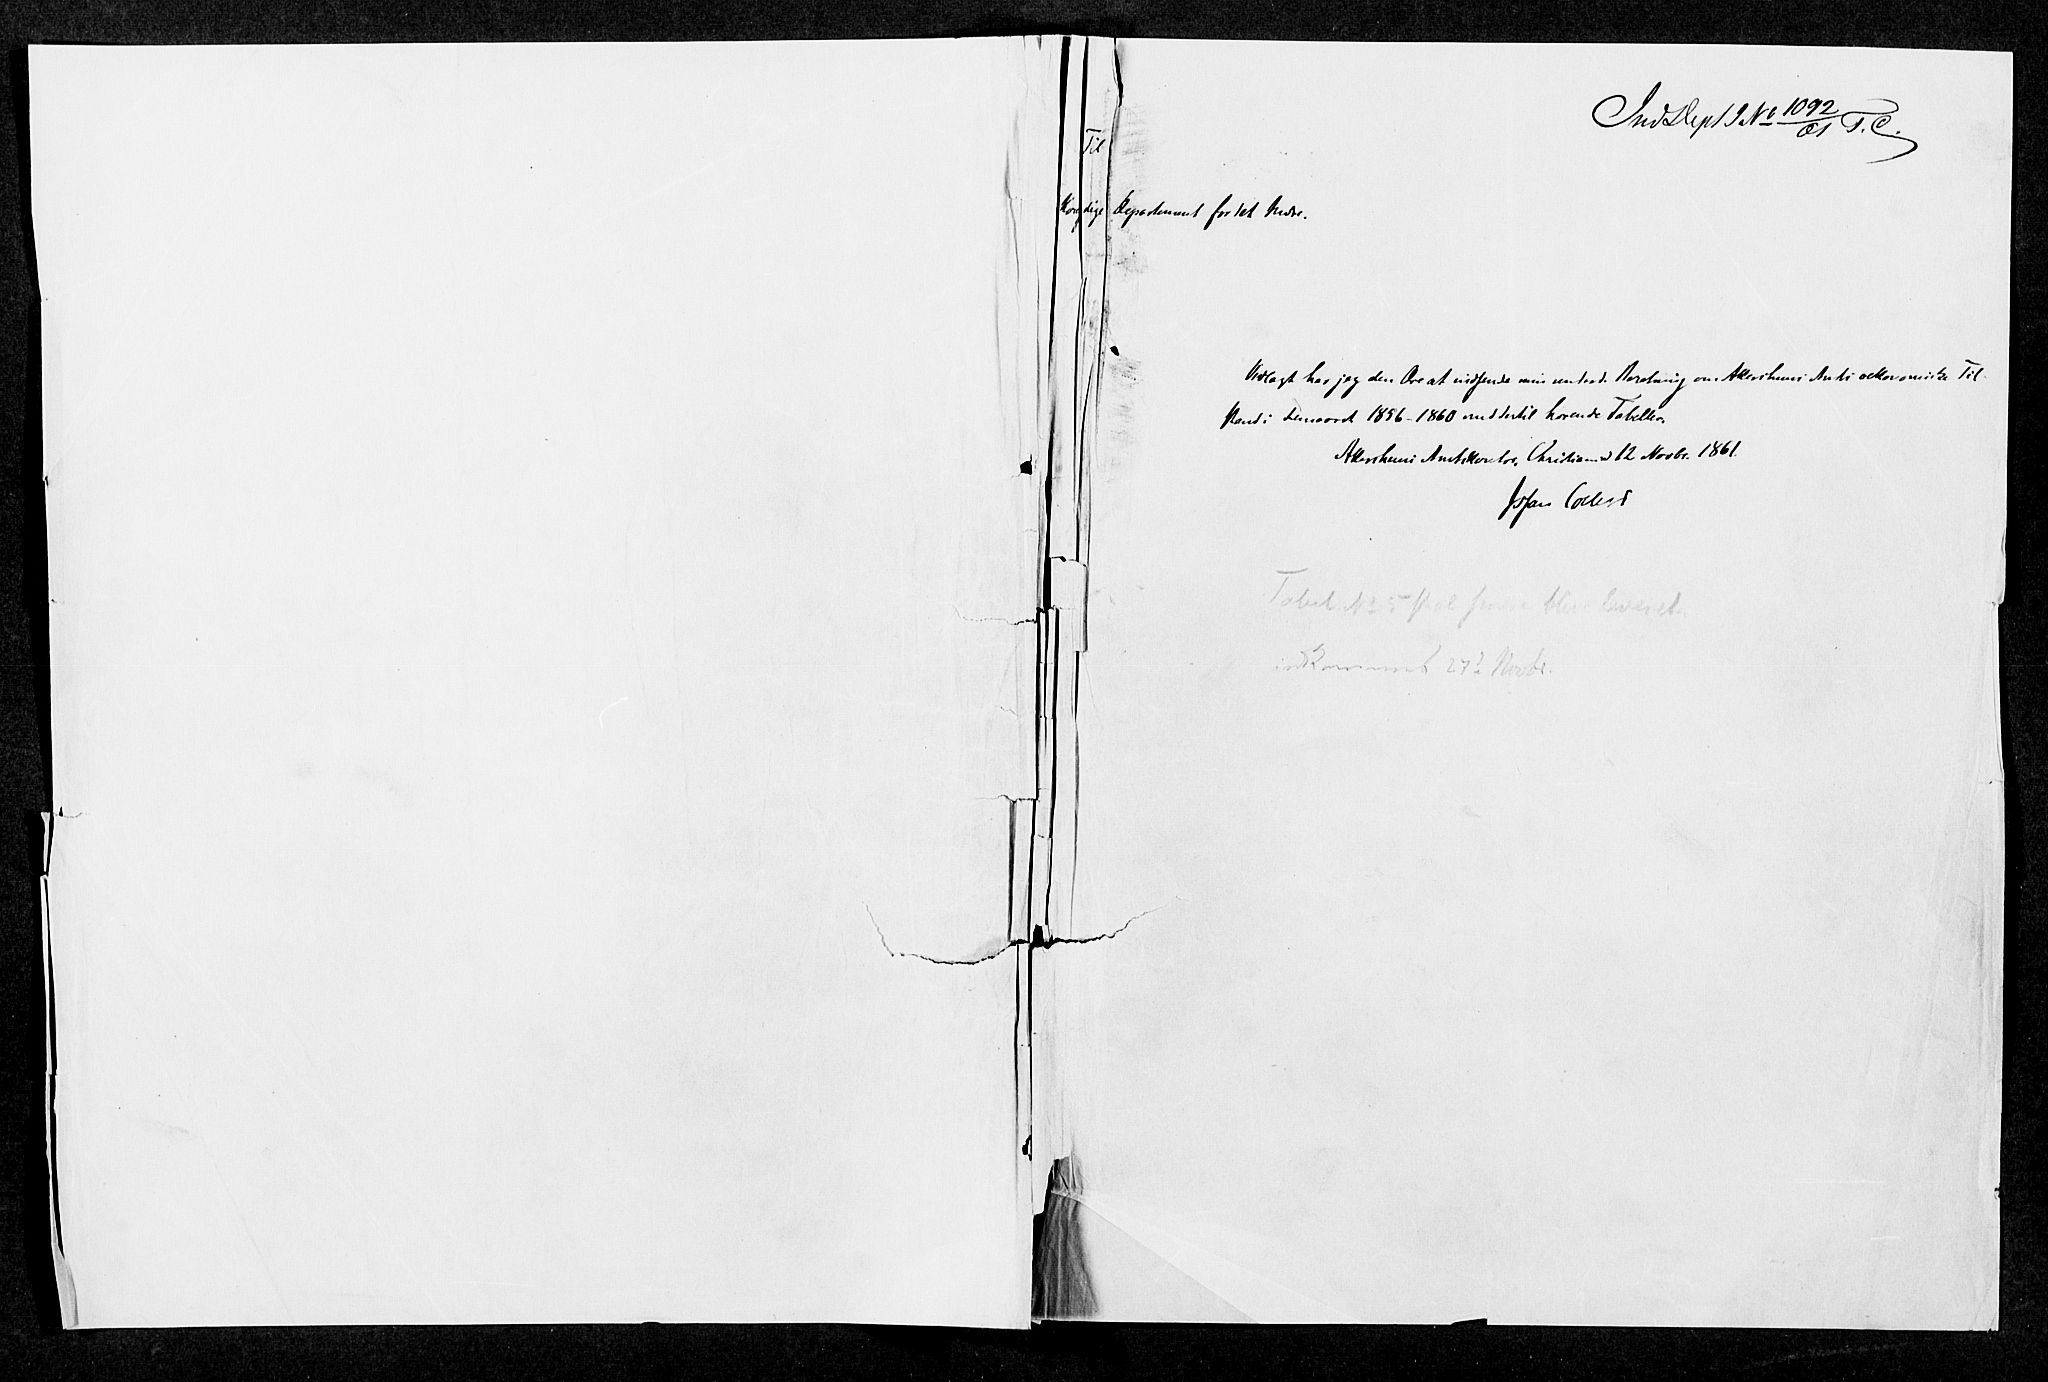 Ind Dept J No 1092/61 T. C.
Til
Kongelige Departement for det Indre.
Vedlagt har jeg den Ære at indsende min underd. Beretning om Akershuus Amts oekonomiske Til-
stand i Femaaret 1856-1860 med dertil hørende Tabeller.
Akershuus Amtskontor, Christiania 12 Novbr. 1861.
Collett
Tabel No 5 skal senere blive leveret.
indkommet 27d Novbr.